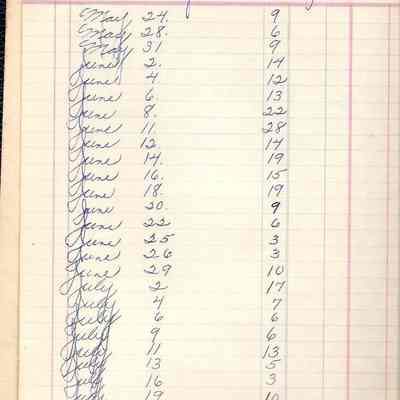 May 24. 9
May 28. 6
May 31 9
June 2. 14
June 4 12
June 6. 13
June 8. 22
June 11. 28
June 12. 14
June 14. 19
June 16. 15
June 18. 19
June 20. 9
June 22 6
June 25 3
June 26 3
June 29 10
July 2 17
July 4 7
July 6 6
July 9 6
July 11 13
July 13 5
July 16 3
July 19 10